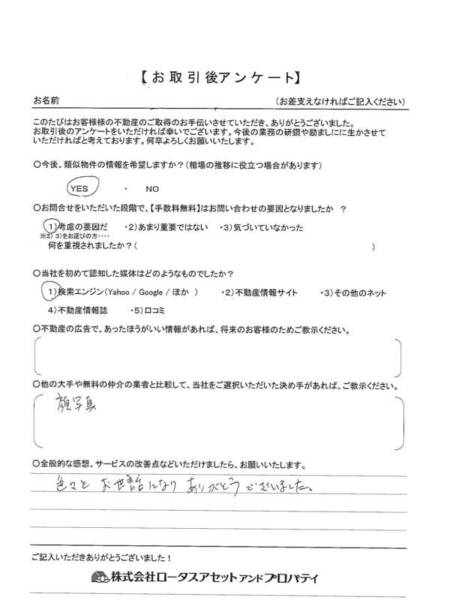 【お取引後アンケート】
お名前　　（お差支えなければご記入ください）
このたびはお客様様の不動産のご取得のお手伝いさせていただき、ありがとうございました。
お取引後のアンケートをいただければ幸いでございます。今後の業務の研鑽や励ましにに生かさせて
いただければと考えております。何卒よろしくお願いいたします。
○今後、類似物件の情報を希望しますか？（相場の推移に役立つ場合があります）
YES ・ NO
○お問合せをいただいた段階で、【手数料無料】はお問い合わせの要因となりましたか ？
1)考慮の要因だ ・2)あまり重要ではない ・3)気づいていなかった
※2) 3)をお選びの方・・・・
何を重視されましたか？（　　）
○当社を初めて認知した媒体はどのようなものでしたか？
1)検索エンジン(Yahoo / Google / ほか ) ・2)不動産情報サイト ・3)その他のネット
4)不動産情報誌 ・5)口コミ
○不動産の広告で、あったほうがいい情報があれば、将来のお客様のためご教示ください。
○他の大手や無料の仲介の業者と比較して、当社をご選択いただいた決め手があれば、ご教示ください。
顔写真
○全般的な感想、サービスの改善点などいただけましたら、お願いいたします。
色々と お世話になり ありがとう ございました。
ご記入いただきありがとうございました！
株式会社ロータスアセットアンドプロパティ